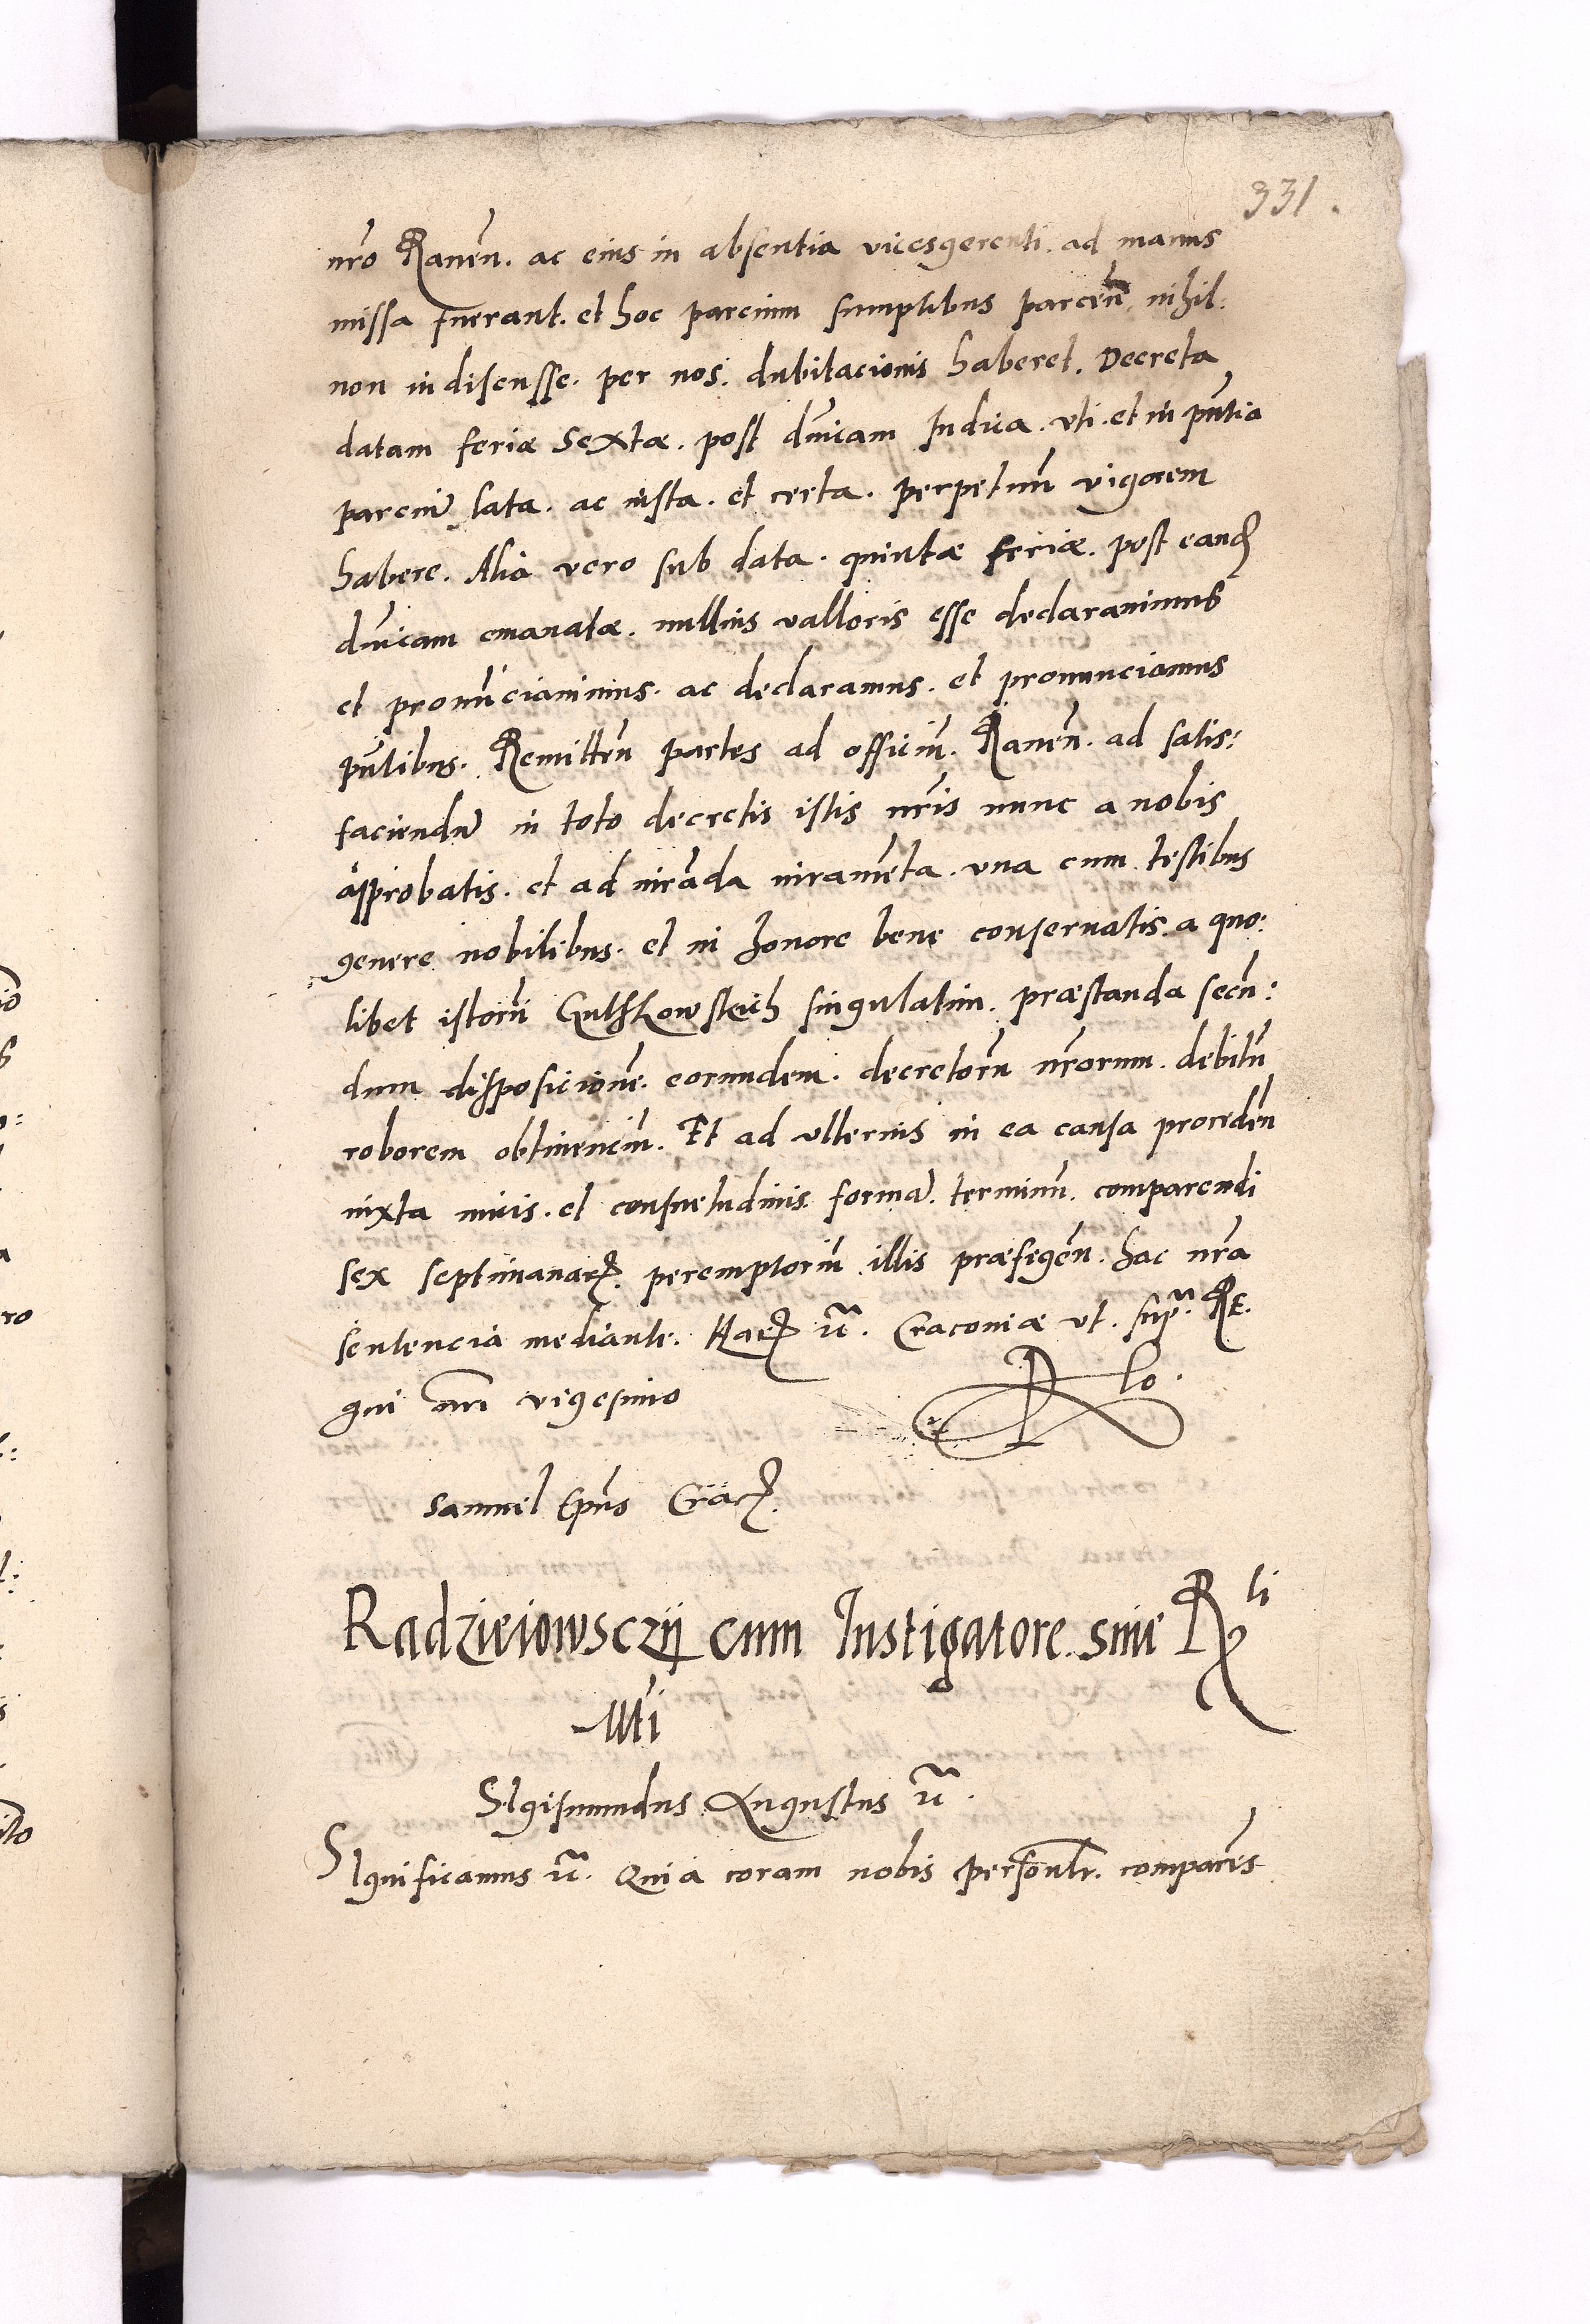 331.
nr̃o Raueñ. ac eius in absentia vicesgerenti. ad manus
missa fuerant. et hoc parcium sumptibus parceñ. nihil.
non indiscusse. per nos. dubitacionis haberet. Decreta
datam feriæ Sextæ. post dñicam Iudica. vti. et in pñtia
parciũ lata. ac iusta. et certa. perpetuũ vigorem
habere. Alia vero sub data. quintæ feriæ. post eand
dñicam emanatæ. nullius valloris esse declarauimus
et pronũciauimus. ac declaramus. et pronunciamus
pñtibus. Remitteñ partes ad officiũ. Raueñ. ad satis:
faciendũ in toto decretis istis nr̃is nunc a nobis
approbatis. et ad iurãda iuramẽta. vna cum testibus
genere nobilibus. et in honore bene conseruatis. a quo:
libet istorũ singulatim. præstanda secũ:
dum disposicionẽ. eorundem. decretorũ nr̃orum. debitũ
roborem obtinenciũ. Et ad vlterius in ea causa procedeñ
iuxta iuris. et consuetudinis formã. terminũ. comparendi
sex septimanar. peremptoriũ illis præfigeñ. hac nr̃a
sentencia mediante. Har ꝛc̃. Cracouiæ vt. supᵃ. RE.
gni nr̃i vigesimo
Samuel Ep̃us Crac.
Radzieiowsczÿ cum Instigatore. siue R li
Mti
SIgismundus Augustus ꝛc̃.
SIgnificamus ꝛc̃. Quia coram nobis personlr. comparẽs